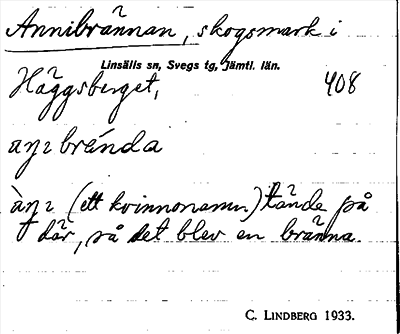 Annibrännan, skogsmark i
Linsälls sn, Svegs tg, Jämtl. län.
Häggsberget, 408
aŋı brénda
àŋı (ett kvinnonamn) tände på
där, så det blev en bränna.
C. LINDBERG 1933.